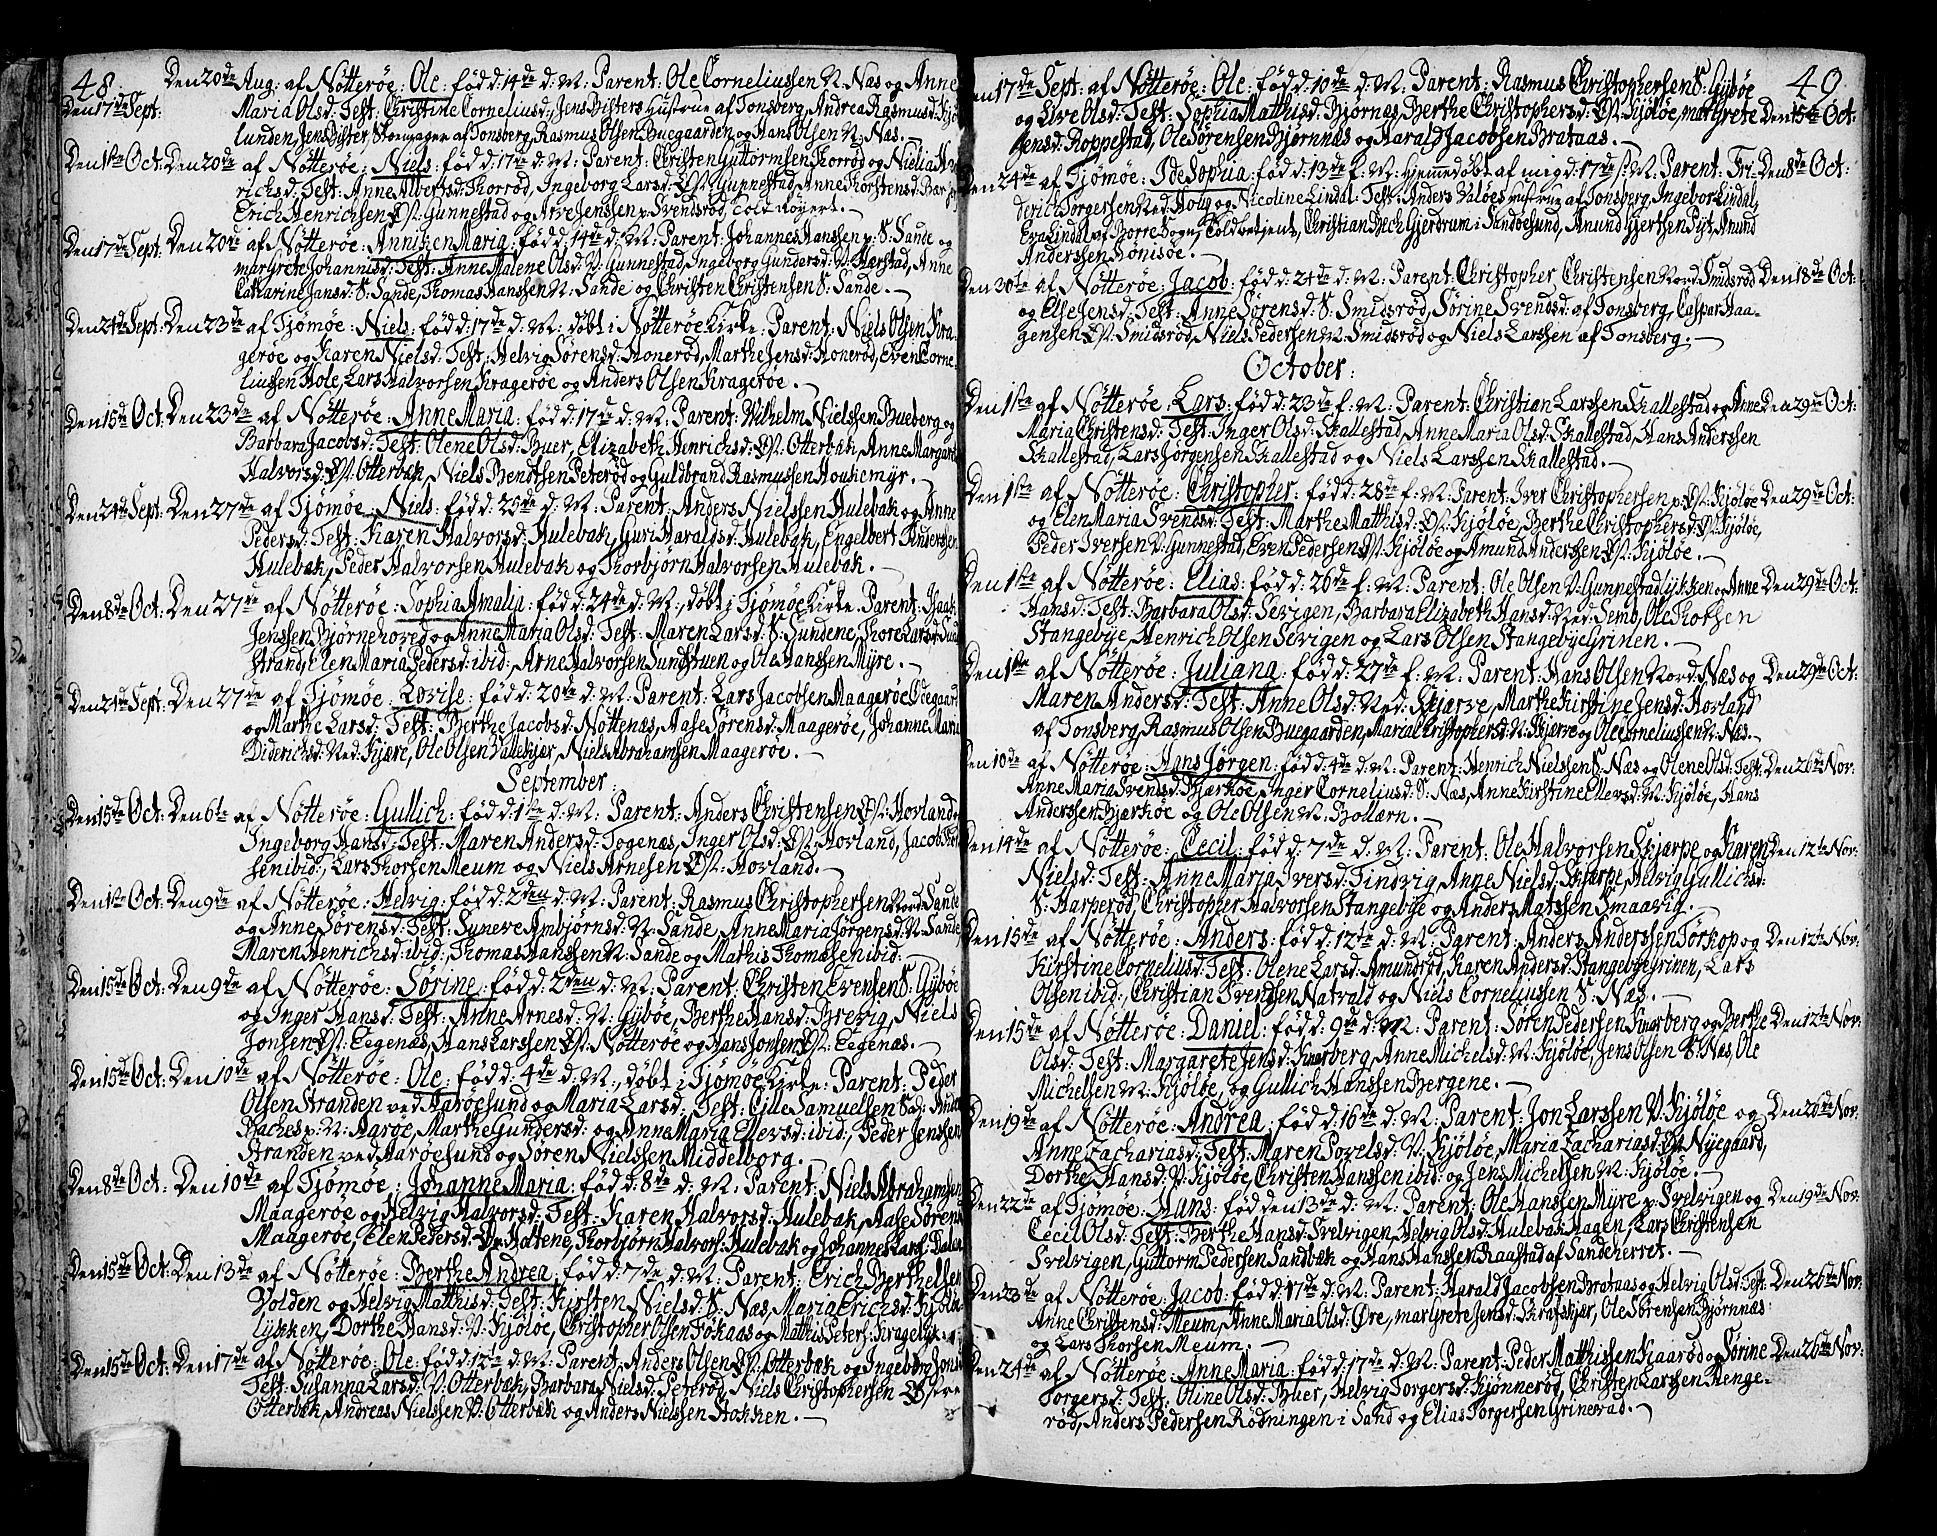 48. Den 20de Aug: af Nötteröe: Ole: född: 14de d: M: Parent: Ole Corneliussen N: Næs og Anne
Den 17de Sept: Maria Olsd: Test: Christine Corneliusd:, Jens Bisters Hustrue af Tonsberg, Andrea Rasmusd:
lunden, Jens Bister, Stormager af Tonsberg, Rasmus Olsen Buegaarden og Hans Olsen N: Næs.
Den 1ste Oct: Den 20de af Nötteröe: Niels: född: 17de d: M: Parent: Christen Guttormsen Thorröd og Nielia Hen
richsd: Test: Anne Albertsd: Thorröd, Ingeborg Larsd: Gunnestad, Anne Thorstensd:
Erich Henrichsen Gunnestad og Arve Jenssen p: Svendsröd, Cold Röyert.
Den 17de Sept: Den 20de af Nötteröe: Anniken Maria: född: 14de d: M: Parent: Johannes Hanssen p: S: Sande og
Margrete Johannisd: Test: Anne Malene Olsd: V: Gunnestad, Ingeborg Gundersd: V: Hærstad, Anne
Catharine Jansd: S: Sande, Thomas Hanssen N: Sande og Christen Christensen S: Sande.
Den 24de Sept: Den 23de af Tjömöe: Niels: född: 17de d: M: döbt i Nötteröe Kirke: Parent: Niels Olsen Kra
geröe og Karen Nielsd: Test: Helvig Sörensd: Honeröd, Marthe Jensd: Honeröd, Even Corne
liussen Hole, Lars Halvorsen Krageröe og Anders Olsen Krageröe.
Den 15de Oct: Den 23de af Nötteröe: Anne Maria: född: 17de d: M: Parent: Wilhelm Nielssen Bueberg og
Barbara Jacobsd: Test: Olene Olsd: Buer, Elizabeth Henrichsd: Otterbæk, Anne Margare
Halvorsd: Otterbæk, Niels Bendtsen Peteröd og Guldbrand Rasmussen Houkemyr.
Den 24de Sept: Den 27de af Tjömöe: Niels: född: 25de d: M: Parent: Anders Nielssen Hulebak og Anne
Pedersd: Test: Karen Halvorsd: Hulebak, Guri Haraldsd: Hulebak, Engelbert Anderssen
Hulebak, Peder Halvorsen Hulebak og Thorbjörn Halvorsen Hulebak.
Den 8de Oct: Den 27de af Nötteröe: Sophia Amalia: född: 24de d: M:, döbt i Tjömöe Kirke: Parent: Isaak
Jenssen Björnehoved og Anne Maria Olsd: Test: Maren Larsd: S: Sundene, Thore Larsd: Sund
strand, Elen Maria Pedersd: ibid:, Arne Halvorsen Sundstuen og Ole Hanssen Myre.
Den 24de Sept: Den 27de af Tjömöe: Lovise: född: 20de d: M: Parent: Lars Jacobsen Maageröe Ödegaard
og Marthe Larsd: Test: Berthe Jacobsd: Nöttenæs, Aase Sörensd: Maageröe, Johanne Maria
Diderichsd: Ned: Kjære, Ole Olsen Vallekjær, Niels Abrahamsen Maageröe.
September:
Den 15de Oct: Den 6te af Nötteröe: Gullich: född: 1ste d: M: Parent: Anders Christensen Hovland og
Ingeborg Hansd: Test: Maren Andersd: Togenæs, Inger Olsd: Hovland, Jacob
sen ibid:, Lars Thorsen Meum og Niels Arnesen Hovland.
Den 1ste Oct: Den 9de af Nötteröe: Helvig: född: 2den d: M: Parent: Rasmus Christophersen Nord: Sande
og Anne Sörensd: Test: Syneve Ambjörnsd: N: Sande, Anne Maria Jörgensd: N: Sande
Maren Henrichsd: ibid:, Thomas Hanssen N: Sande og Mathis Thomæsen ibid:
Den 15de Oct: Den 9de af Nötteröe: Sörine: född: 2den d: M: Parent: Christen Evensen S: Gyböe
og Inger Hansd: Test: Anne Arnesd: N: Gyböe, Berthe Hansd: Brevig, Niels
Jonsen Tegenæs, Hans Larssen Nötteröe og Hans Jonsen Tegenæs.
Den 15de Oct: Den 10de af Nötteröe: Ole: född: 4de d: M:, döbt i Tjömöe Kirke: Parent: Peder
Olsen Stranden ved Aaröesund og Maria Larsd: Test: Cille Samuelsen Sal: Anders
Baches p: N: Aaröe, Marthe Gundersd: og Anne Maria Ellevsd: ibid:, Peder Jenssen
Stranden ved Aaröesund og Sören Nielssen Middelborg.
Den 8de Oct: Den 10de af Tjömöe: Johanne Maria: född: 8de d: M: Parent: Niels Abrahamsen
Maageröe og Helvig Halvorsd: Test: Karen Halvorsd: Hulebak, Aase Sörens
Maageröe, Elen Pedersd: Thorbjörn Halvors: Hulebak og Johannes Lars: Dalen
Den 15de Oct: Den 13de af Nötteröe: Berthe Andrea: född: 7de d: M: Parent: Erich Berthelsen
Volden og Helvig Matthisd: Test: Kirsten Nielsd: S: Næs, Maria Erichsd: Kjölöe
lykken, Dorthe Hansd: V: Kjölöe, Christopher Olsen Fökaas og Mathis Peters: Kragelyk.
Den 15de Oct: Den 17de af Nötteröe: Ole: född: 12te d: M: Parent: Anders Olsen Otterbæk og Ingeborg Jonsd
Test: Susanna Larsd: V: Otterbæk, Barbara Nielsd: Peteröd, Niels Christophersen
Otterbæk, Andreas Nielssen V: Otterbæk og Anders Nielssen Stokken.
49
Den 17de Sept: af Nötteröe: Ole: född: 10de d: M: Parent: Rasmus Christophersen S: Gyböe
og Live Olsd: Test: Sophia Mathisd: Björnes, Berthe Christophersd: Kjölöe, Margrete Den 15de Oct:
Jensd: Roppestad, Ole Sörensen Björnnæs og Harald Jacobsen Brataas.
Den 24de af Tjömöe: Ide Sophia: född: 13de f: M: Hjemmedöbt af mig d: 17de s: M: Parent: Fri- Den 8de Oct:
derich Torgersen Ned: Holg og Nicoline Lindal: Test: Anders Valöes Hustrue af Tonsberg, Ingebor Lindal,
Eva Lindal af Borre Sogn, Toldbetjent, Christian Mich Gjerdrum i Sandöesund, Amund Gjerthsen Pijt, Amund
Anderssen Bönisöe.
Den 30te af Nötteröe: Jacob: född: 24de d: M: Parent: Christopher Christensen Nord: Smidsröd Den 18de Oct:
og Else Jensd: Test: Anne Sörensd: S: Smidsröd, Sörine Svendsd: af Tonsberg, Caspar Haa-
gensen Smidsröd, Niels Pedersen N: Smidsröd og Niels Larssen af Tonsberg.
October:
Den 1ste af Nötteröe: Lars: född: 23de f: M: Parent: Christian Larssen Skallestad og Anne Den 29de Oct:
Maria Christensd: Test: Inger Olsd: Skallestad, Anne Maria Olsd: Skallestad, Hans Anderssen
Skallestad, Lars Jörgensen Skallestad og Niels Larssen Skallestad.
Den 1ste af Nötteröe: Christopher: född: 28de f: M: Parent: Iver Christophersen p: Kjölöe Den 29de Oct:
og Elen Maria Svendsd: Test: Marthe Matthisd: Kjölöe, Berthe Christophersd: Kjölöe,
Peder Iversen V: Gunnestad, Even Pedersen Kjölöe og Amund Anderssen Kjölöe.
Den 1ste af Nötteröe: Elias: född: 26de f: M: Parent: Ole Olsen V: Gunnestad lykken og Anne Den 29de Oct:
Hansd: Test: Barbara Olsd: Sevigen, Barbara Elizabeth Hansd: Ned: Semb, Ole Thorsen
Stangebye, Henrich Olsen Sevigen og Lars Olsen Stangebye Grinen.
Den 1ste af Nötteröe: Juliana: född: 27de f: M: Parent: Hans Olsen Nord: Næs og Den 29de Oct:
Maren Andersd: Test: Anne Olsd: Ned: Skjærve, Marthe Kirstine Jensd: Hovland
af Tonsberg, Rasmus Olsen Buegaarden, Maria Christophersd: N: Skjærve og Ole Corneliussen N: Næs.
Den 10de af Nötteröe: Hans Jörgen: född: 4de d: M: Parent: Henrich Nielssen S: Næs og Olene Olsd: Test: Den 26de Nov:
Anne Maria Svendsd: Bjærköe, Inger Corneliusd: S: Næs, Anne Kirstine Ellevsd: V: Kjölöe, Hans
Anderssen Bjærköe og Ole Olsen M: Bollærn.
Den 14de af Nötteröe: Cecil: född: 7de d: M: Parent: Ole Halvorsen Skjerpe og Karen Den 12te Nov:
Nielsd: Test: Anne Maria Iversd: Tindvig, Anne Nielsd: Skjerpe, Helvig Gullichsd:
S: Harperöd, Christopher Halvorsen Stangebye og Anders Matssen Smaavig.
Den 15de af Nötteröe: Anders: född: 12te d: M: Parent: Anders Anderssen Torkop og Den 12te Nov:
Kirstine Corneliusd: Test: Olene Larsd: Amundröd, Karen Andersd: Stangebye Grinen, Lars
Olsen ibid:, Christian Svendsen Natvald og Niels Corneliussen S: Næs.
Den 15de af Nötteröe: Daniel: född: 9de d: M: Parent: Sören Pedersen Knarberg og Berthe Den 12te Nov:
Olsd: Test: Margarete Jensd: Knarberg, Anne Michelsd: N: Kjölöe, Jens Olsen S: Næs, Ole
Michelsen N: Kjölöe, og Gullich Hanssen Bergene.
Den 19de af Nötteröe: Andrea: född: 16de d: M: Parent: Jon Larssen V: Kjölöe og Den 26de Nov:
Anne Zachariasd: Test: Maren Povelsd: V: Kjölöe, Maria Zachariasd: Nyegaard,
Dorthe Hansd: V: Kjölöe, Christen Hanssen ibid: og Jens Michelsen N: Kjölöe.
Den 22de af Tjömöe: Hans: född den 13de d: M: Parent: Ole Hanssen Myre p: Svelvigen og Den 19de Nov:
Cecil Olsd: Test: Berthe Hansd: Svelvigen, Helvig Olsd: Hulebak Hagen, Lars Christensen
Svelvigen, Guttorm Pedersen Sandbæk og Hans Hanssen Raastad af Sandeherret.
Den 23de af Nötteröe: Jacob: född: 17de d: M: Parent: Harald Jacobsen Brataas og Helvig Olsd: Test: Den 26de Nov:
Anne Christensd: Meum, Anne Maria Olsd: Öre, Margrete Jensd: Skrafskjær, Ole Sörensen Björnnæs
og Lars Thorsen Meum.
Den 24de af Nötteröe: Anne Maria: född: 17de d: M: Parent: Peder Matthissen Kaaröd og Sörine Den 26de Nov:
Torgersd: Test: Oline Olsd: Buer, Helvig Torgersd: Kjönneröd, Christen Larssen Henge-
röd, Anders Pedersen Rödningen i Sand og Elias Torgersen Grinevad.